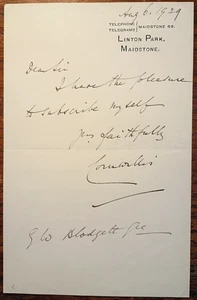 Aug 6. 1929
TELEPHONE
TELEGRAMS
MAIDSTONE 65.
LINTON PARK,
MAIDSTONE.
Dear Sir
I have the pleasure
to subscribe myself
Yrs faithfully
Cornwallis
G W Blodgett Esq